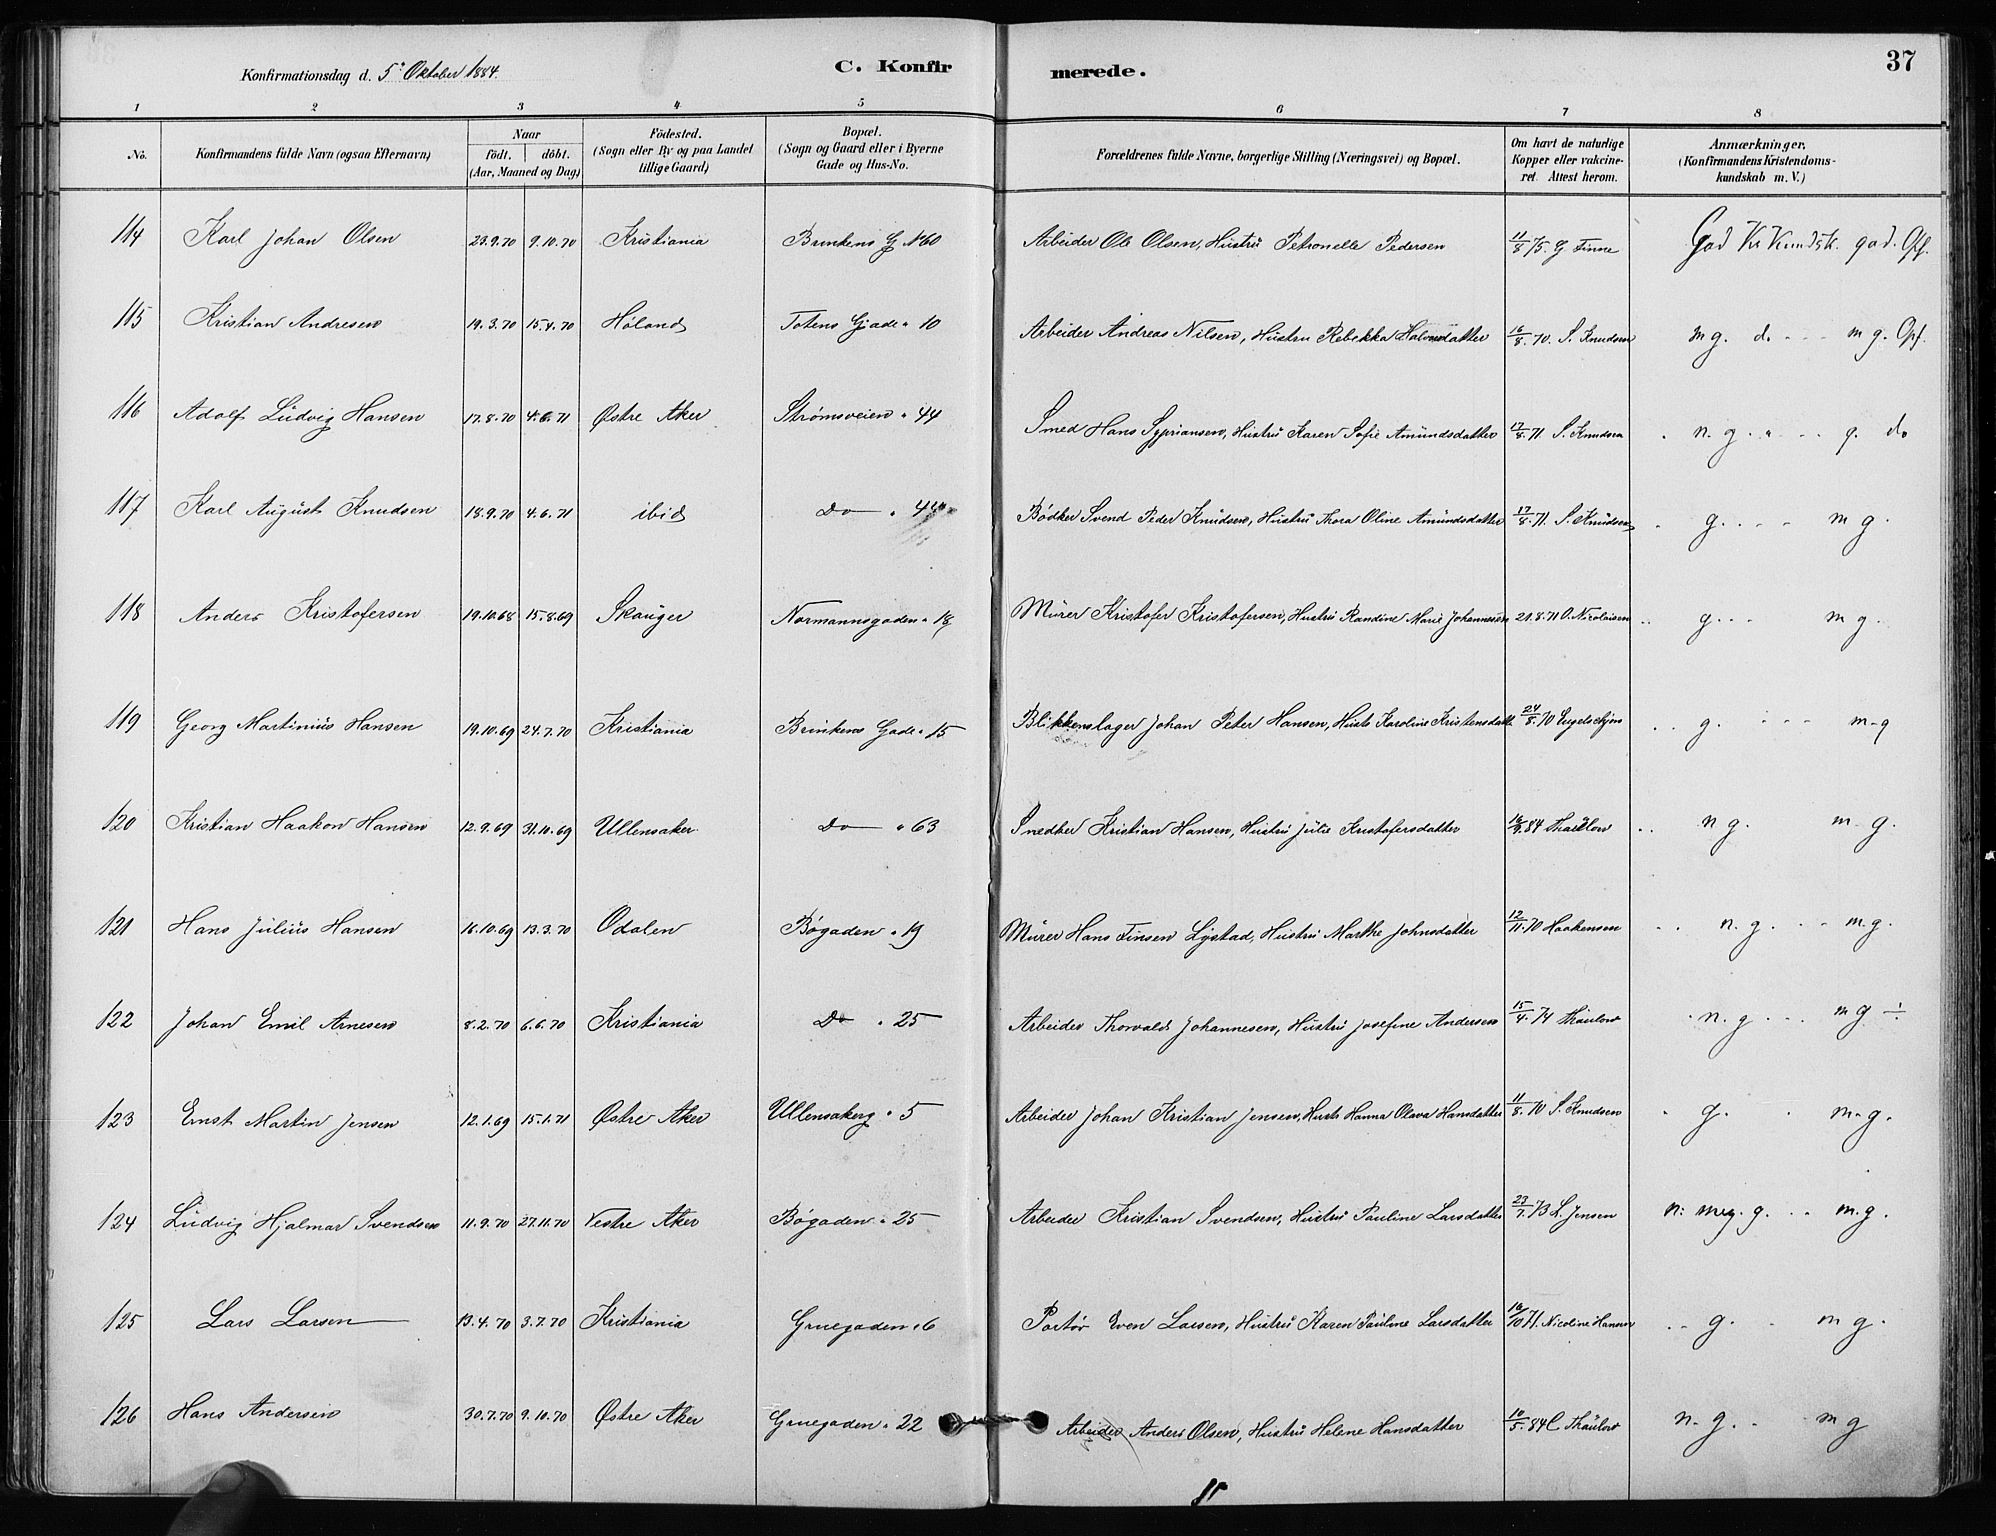 Konfirmationsdag d. 5te Oktober 1884. C. Konfirmerede. 37
1 2 3 4 5 6 7 8
No. Konfirmandens fulde Navn (ogsaa Efternavn) Naar födt. döbt. (Aar, Maaned og Dag) Födested. (Sogn eller By og paa Landet tillige Gaard) Bopæl. (Sogn og Gaard eller i Byerne Gade og Hus-No. Forældrenes fulde Navne, borgerlige Stilling (Næringsvei) og Bopæl. Om havt de naturlige Kopper eller vakcineret. Attest herom. Anmærkninger. (Konfirmandens Kristendomskundskab m. V.)
114 Karl Johan Olsen 23.9.70 9.10.70 Kristiania Brinkens G. No 60 Arbeider Ole Olsen, Hustru Petronelle Pedersen 11/8 75. G Finne God Kr Kundsk. god. Opf.
115 Kristian Andresen 19.3.70 15.4.70 Höland Totens Gade " 10 Arbeider Andreas Nilsen, Hustru Rebekka Halvorsdatter 16/8. 70. S. Knudsen m g. do - - - m g. Opf.
116 Adolf Ludvig Hansen 17.8.70 4.6.71 Østre Aker Strømsveien " 44 Smed Hans Sypriansen, Hustru Karen Sofie Amundsdatter 17/8. 71. S. Knudsen n. g. - - - g. do
117 Karl August Knudsen 18.9.70 4.6.71 ibid Do " 44 Bødker Svend Peder Knudsen, Hustru Thora Oline Amundsdatter 17/8. 71. S. Knudsen g. - - - m g.
118 Anders Kristofersen 19.10.68 15.8.69 Skauger Normannsgaden " 18 Murer Kristofer Kristofersen, Hustru Randine Marie Johannesen 21.8.71 O. Nicolaisen g. - - m g.
119 Georg Martinius Hansen 19.10.69 24.7.70 Kristiania Brinkens Gade " 15 Blikkenslager Johan Peter Hansen, Hustr Karoline Kristensdatt. 24/8. 70 g. - - - m-g
120 Kristian Haakon Hansen 12.9.69 31.10.69 Ullensaker Do " 63 Snedker Kristian Hansen, Hustru Julie Kristofersdatter 16/9. 84 Thaulow n g. m. g.
121 Hans Julius Hansen 16.10.69 13.3.70 Odalen Bøgaden " 19 Murer Hans Finsen Lystad, Hustru Marthe Johnsdatter 12/11. 70 Haakensen n. g. - - m. g.
122 Johan Emil Arnesen 8.2.70 6.6.70 Kristiania Do " 25 Arbeider Thorvald Johannesen, Hustru Josefine Andersen 15/4. 74 Thaulow n. g. - - - m g ÷
123 Ernst Martin Jensen 12.1.69 15.1.71 Østre Aker Ullensakerg " 5 Arbeider Johan Kristian Jensen, Hustr Hanna Olava Hansdatter 11/8. 70 S. Knudsen g. m-g.
124 Ludvig Hjalmar Svendsen 11.9.70 27.11.70 Vestre Aker Bøgaden " 25 Arbeider Kristian Svendsen, Hustru Pauline Larsdatter 23/7. 73 L. Jensen n: meg. g. - - m.g.
125 Lars Larsen 13.4.70 3.7.70 Kristiania Gruegaden " 6 Portør Even Larsen, Hustru Karen Pauline Larsdatter 16/10 71. Nicoline Hansen g. - m g.
126 Hans Andersen 30.7.70 9.10.70 Østre Aker Gruegaden " 22 Arbeider Anders Olsen, Hustru Helene Hansdatter 10/5. 84 C Thaulow n. g. - m g